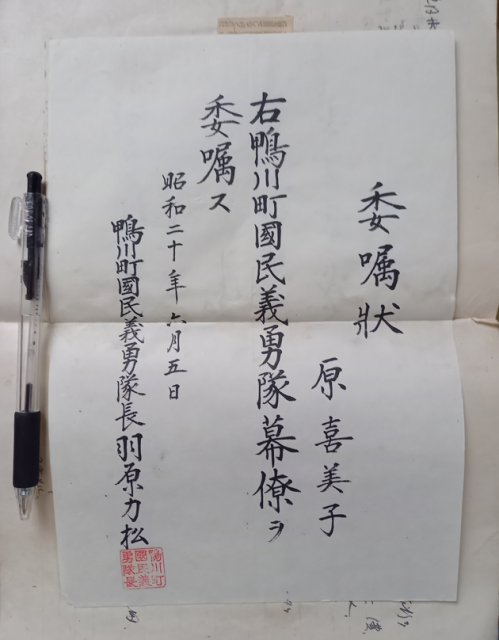 委嘱狀
原喜美子
右鴨川町國民義勇隊幕僚ヲ
委嘱ス
昭和二十年六月五日
鴨川町國民義勇隊長羽原力松
鴨川町
國民義
勇隊長